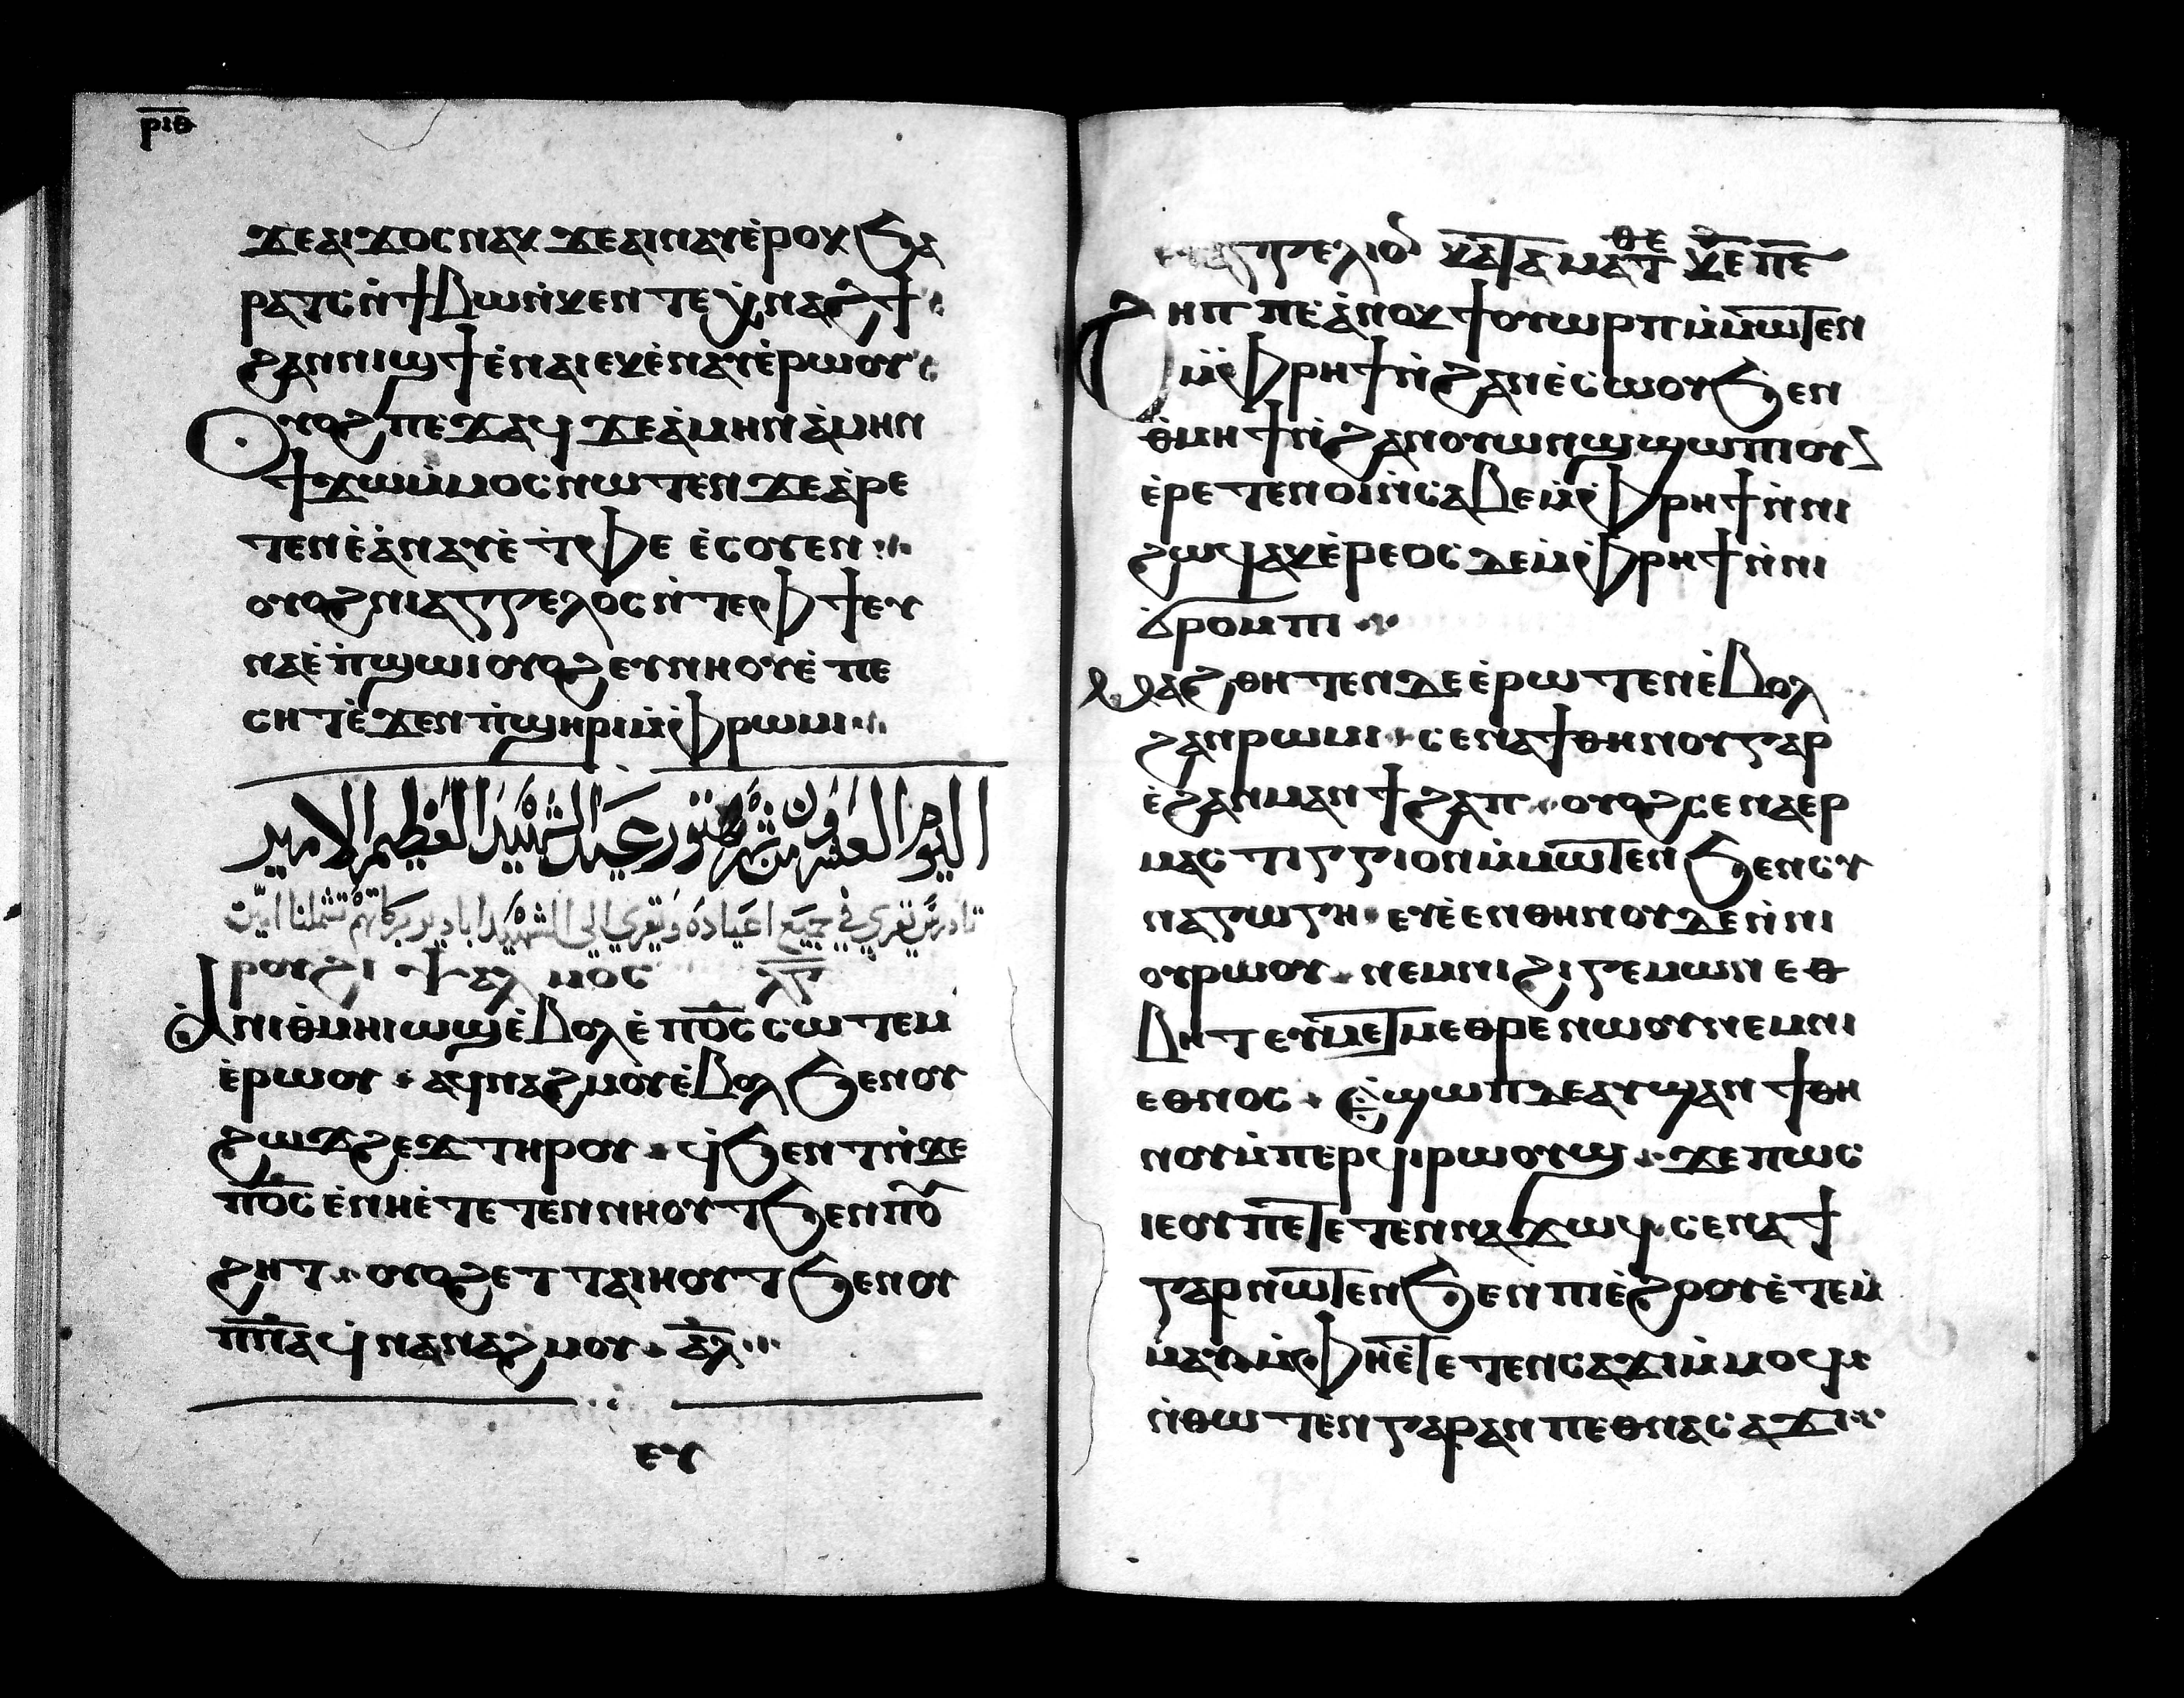 ⲣⲓⲑ
ϫⲉⲁⲓϫⲟⲥⲛⲁⲕ ϫⲉⲁⲓⲛⲁⲩⲉ̀ⲣⲟⲕ ϧⲁ
ⲣⲁⲧⲥⲛ̀ϯⲃⲱⲛ̀ⲕⲉⲛⲧⲉ ⲭ̀ⲛⲁϩϯ
ϩⲁⲛⲛⲓϣϯ ⲉ̀ⲛⲁⲓ ⲉⲕⲉ̀ⲛⲁⲩⲉ̀ⲣⲱⲟⲩ
Ⲟⲩⲟϩ ⲡⲉϫⲁϥ ϫⲉⲁ̀ⲙⲏⲛ ⲁ̀ⲙⲏⲛ
ϯϫⲱⲙ̀ⲙⲟⲥⲛⲱⲧⲉⲛ ϫⲉⲁ̀ⲣⲉ
ⲧⲉⲛⲉ̀ⲁ̀ⲛⲁⲩⲉ̀ ⲧ̀ⲫⲉ ⲉ̀ⲥⲟⲩⲉⲛ
ⲟⲩⲟϩ ⲛⲓⲁⲅⲅⲉⲗⲟⲥ ⲛ̀ⲧⲉⲫϯ ⲉⲩ
ⲛⲁⲉ̀ ⲡ̀ϣⲱⲓ ⲟⲩⲟϩ ⲉⲩⲛⲏⲟⲩⲉ̀ ⲡⲉ
ⲥⲏⲧ ⲉ̀ϫⲉⲛ ⲡ̀ϣⲏⲣⲓ ⲙ̀ⲫⲣⲱⲙⲓ
اليوم العشرون من شهر هتور عيد الشهيد العظيم الامير
تادرس تقري في جميع اعياده وتقري الي الشهيد ابادير بركاتهم تشملنا امين
ⲣⲟⲩϩⲓ ⲯⲁⲗⲙⲟⲥ ⲗ̅ⲅ̅
Ⲁ̀ⲛⲓⲑ̀ⲙⲏⲓ ⲱϣ ⲉ̀ⲃⲟⲗ ⲉ̀ ⲡ̅ⲟ̅ⲥ̅ ⲥⲱⲧⲉⲙ
ⲉ̀ⲣⲱⲟⲩ ⲁϥⲛⲁϩⲙⲟⲩ ⲉ̀ⲃⲟⲗ ϧⲉⲛ ⲛⲟⲩ
ϩⲱϫϩⲉϫ ⲧⲏⲣⲟⲩ ϥ̀ϧⲉⲛⲧ ⲛ̀ϫⲉ
ⲡ̅ⲟ̅ⲥ̅ ⲉ̀ⲛⲏⲉ̀ⲧⲉ ⲧⲉⲛⲛⲏⲟⲩⲧ ϧⲉⲛ ⲡⲟⲩ
ϩⲏⲧ ⲟⲩⲟϩ ⲉⲧ ⲧⲁⲓⲏⲟⲩⲧ ϧⲉⲛ ⲟⲩ
ⲡ̅ⲛ̅ⲁ̅ ϥ̀ⲛⲁⲛⲁϩⲙⲟⲩ ⲁ̅ⲗ̅
ⲉⲩ
ⲉⲩⲁⲅⲅⲉⲗⲓⲟⲛ ⲕⲁⲧⲁ ⲙⲁⲧⲑⲉ ⲕⲉ ⲡⲉ
Ϩⲏⲡⲡⲉ ⲁ̀ⲛⲟⲕ ϯⲟⲩⲱⲣⲡ ⲙ̀ⲙⲱⲧⲉⲛ
ⲙ̀ⲫⲣⲏϯ ⲛ̀ϩⲁⲛⲉ̀ⲥⲱⲟⲩ ϧⲉⲛ
ⲑ̀ⲙⲏϯ ⲛ̀ϩⲁⲛⲟⲩⲱⲛϣ ϣⲱⲡⲓ ⲟⲩⲛ
ⲉ̀ⲣⲉⲧⲉⲛⲟⲓ ⲛ̀ⲥⲁⲃⲉ ⲙ̀ⲫⲣⲏϯ ⲛ̀ⲛⲓ
ϩⲱϥ ⲁⲕⲉ̀ⲣⲉⲟⲥ ⲇⲉ ⲙ̀ⲫⲣⲏϯ ⲛ̀ⲛⲓ
ϭ̀ⲣⲟⲙⲡⲓ
Ⲙⲁϩⲑⲏⲧⲉⲛ ⲇⲉ ⲉ̀ⲣⲱⲧⲉⲛ ⲉ̀ⲃⲟⲗ
ϩⲁⲛⲣⲱⲙⲓ ⲥⲉⲛⲁϯⲑⲏⲛⲟⲩ ⲅⲁⲣ
ⲉ̀ϩⲁⲛⲙⲁⲛϯϩⲁⲡ ⲟⲩⲟϩ ⲥⲉⲛⲁⲉⲣ
ⲙⲁⲥⲧⲓⲅⲅⲓⲟⲛ ⲙ̀ⲙⲱⲧⲉⲛ ϧⲉⲛ ⲥⲩ
ⲛⲁⲅⲱⲅⲏ ⲉⲩⲉ̀ⲉⲛ ⲑⲏⲛⲟⲩ ⲇⲉ ⲛ̀ⲛⲓ
ⲟⲩⲣⲱⲟⲩ ⲛⲉⲙ ⲛⲓϩⲓⲅⲉⲙⲱⲛ ⲉⲑ
ⲃⲏⲧ ⲉⲩⲙⲉⲧⲙⲉⲑⲣⲉ ⲛⲱⲟⲩ ⲛⲉⲙ ⲛⲓ
ⲉⲑⲛⲟⲥ Ⲉ̀ϣⲱⲡ ⲇⲉ ⲁⲩϣⲁⲛϯⲑⲏ
ⲛⲟⲩ ⲙ̀ⲡⲉⲣϥⲓⲣⲱⲟⲩϣ ϫⲉ ⲡⲱⲥ
ⲓⲉ ⲟⲩ ⲡⲉⲧⲉⲧⲉⲛⲛⲁϫⲱϥ ⲥⲉⲛⲁϯ
ⲅⲁⲣ ⲛⲱⲧⲉⲛ ϧⲉⲛ ⲡⲓⲉ̀ϩⲟⲟⲩ ⲉ̀ⲧⲉⲙ̀
ⲙⲁⲩ ⲙ̀ⲫⲏⲉ̀ⲧⲉⲧⲉⲛⲥⲁϫⲓ ⲙ̀ⲙⲟϥ
ⲛ̀ⲑⲱⲧⲉⲛ ⲅⲁⲣ ⲁⲛ ⲡⲉⲑⲛⲁⲥⲁϫⲓ